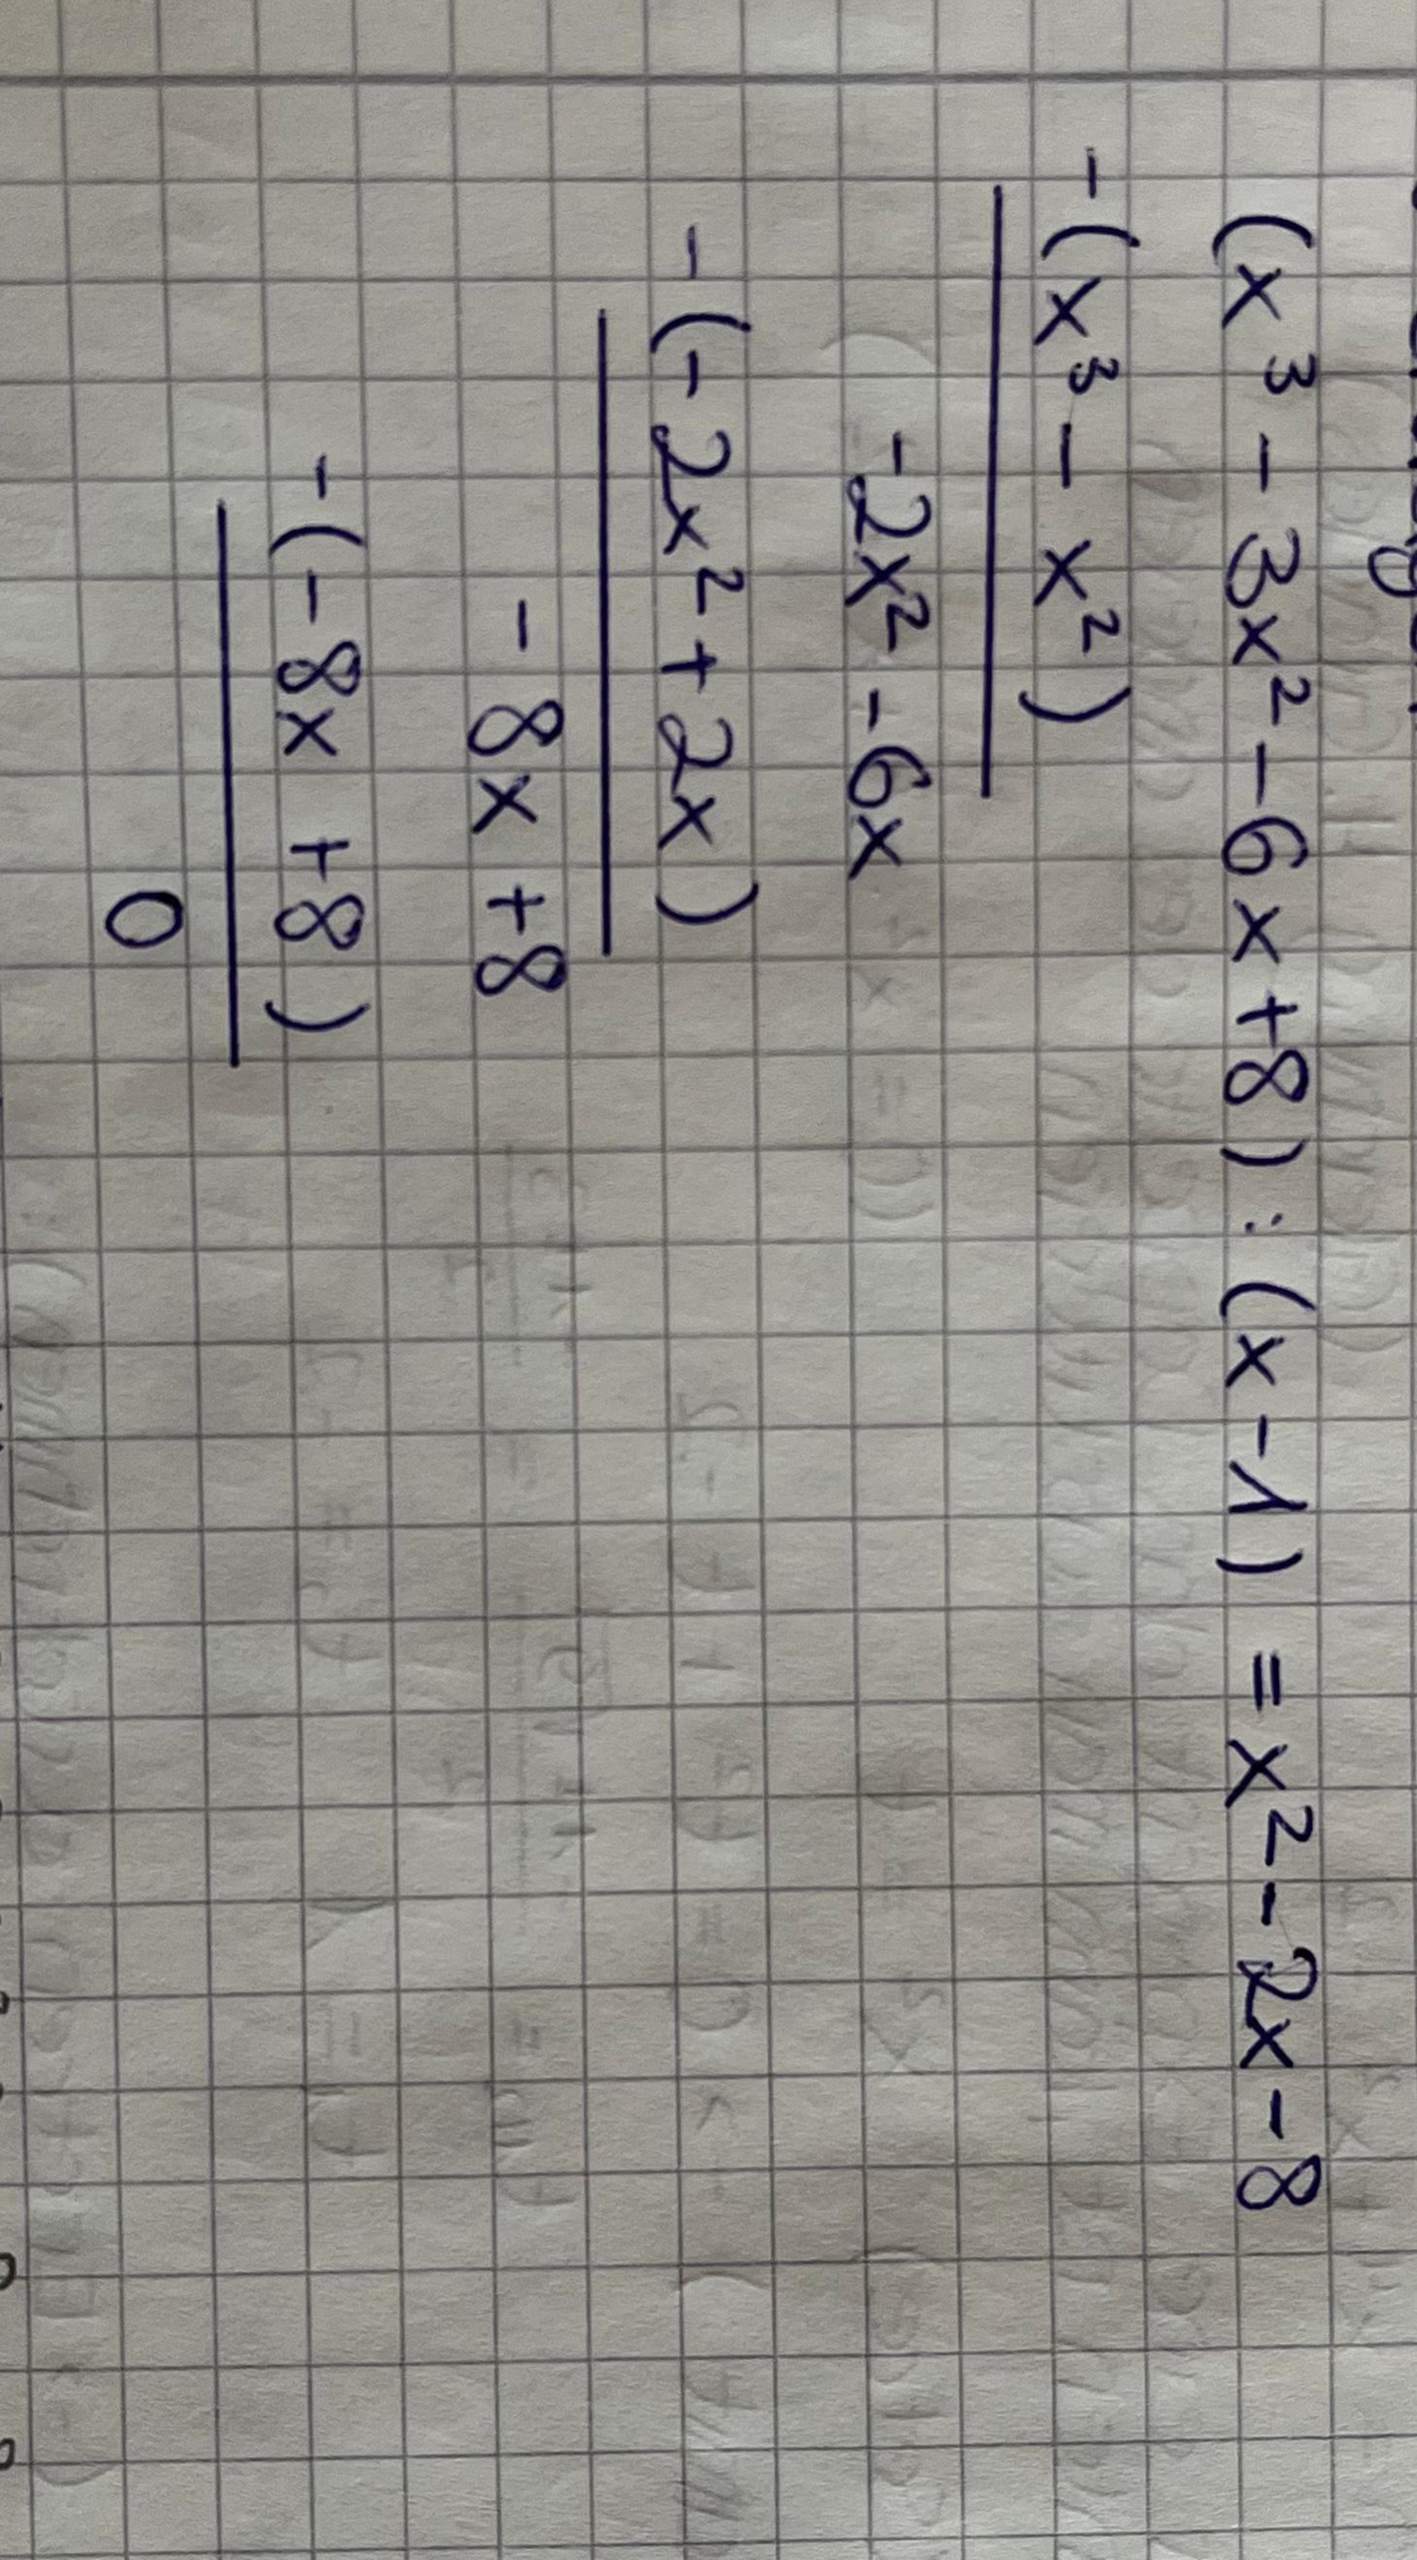 (x³ - 3x² - 6x + 8) : (x - 1) = x² - 2x - 8
-(x³ - x²)
-2x² - 6x
-(-2x² + 2x)
- 8x + 8
-(- 8x + 8)
0